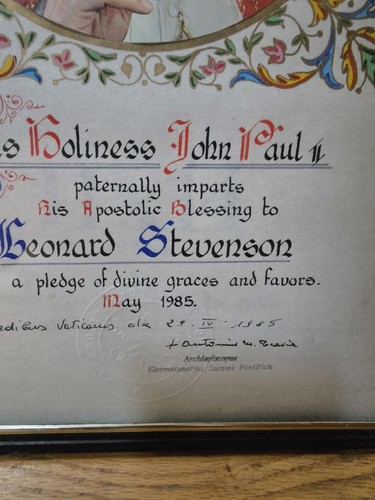 is Holiness John Paul II
paternally imparts
His Apostolic Blessing to
Leonard Stevenson
a pledge of divine graces and favors.
May 1985.
edibus Vaticanis die 29-IV-1985
+ Antonius M.
Archiepiscopus
Eleemosynarius Summi Pontificis